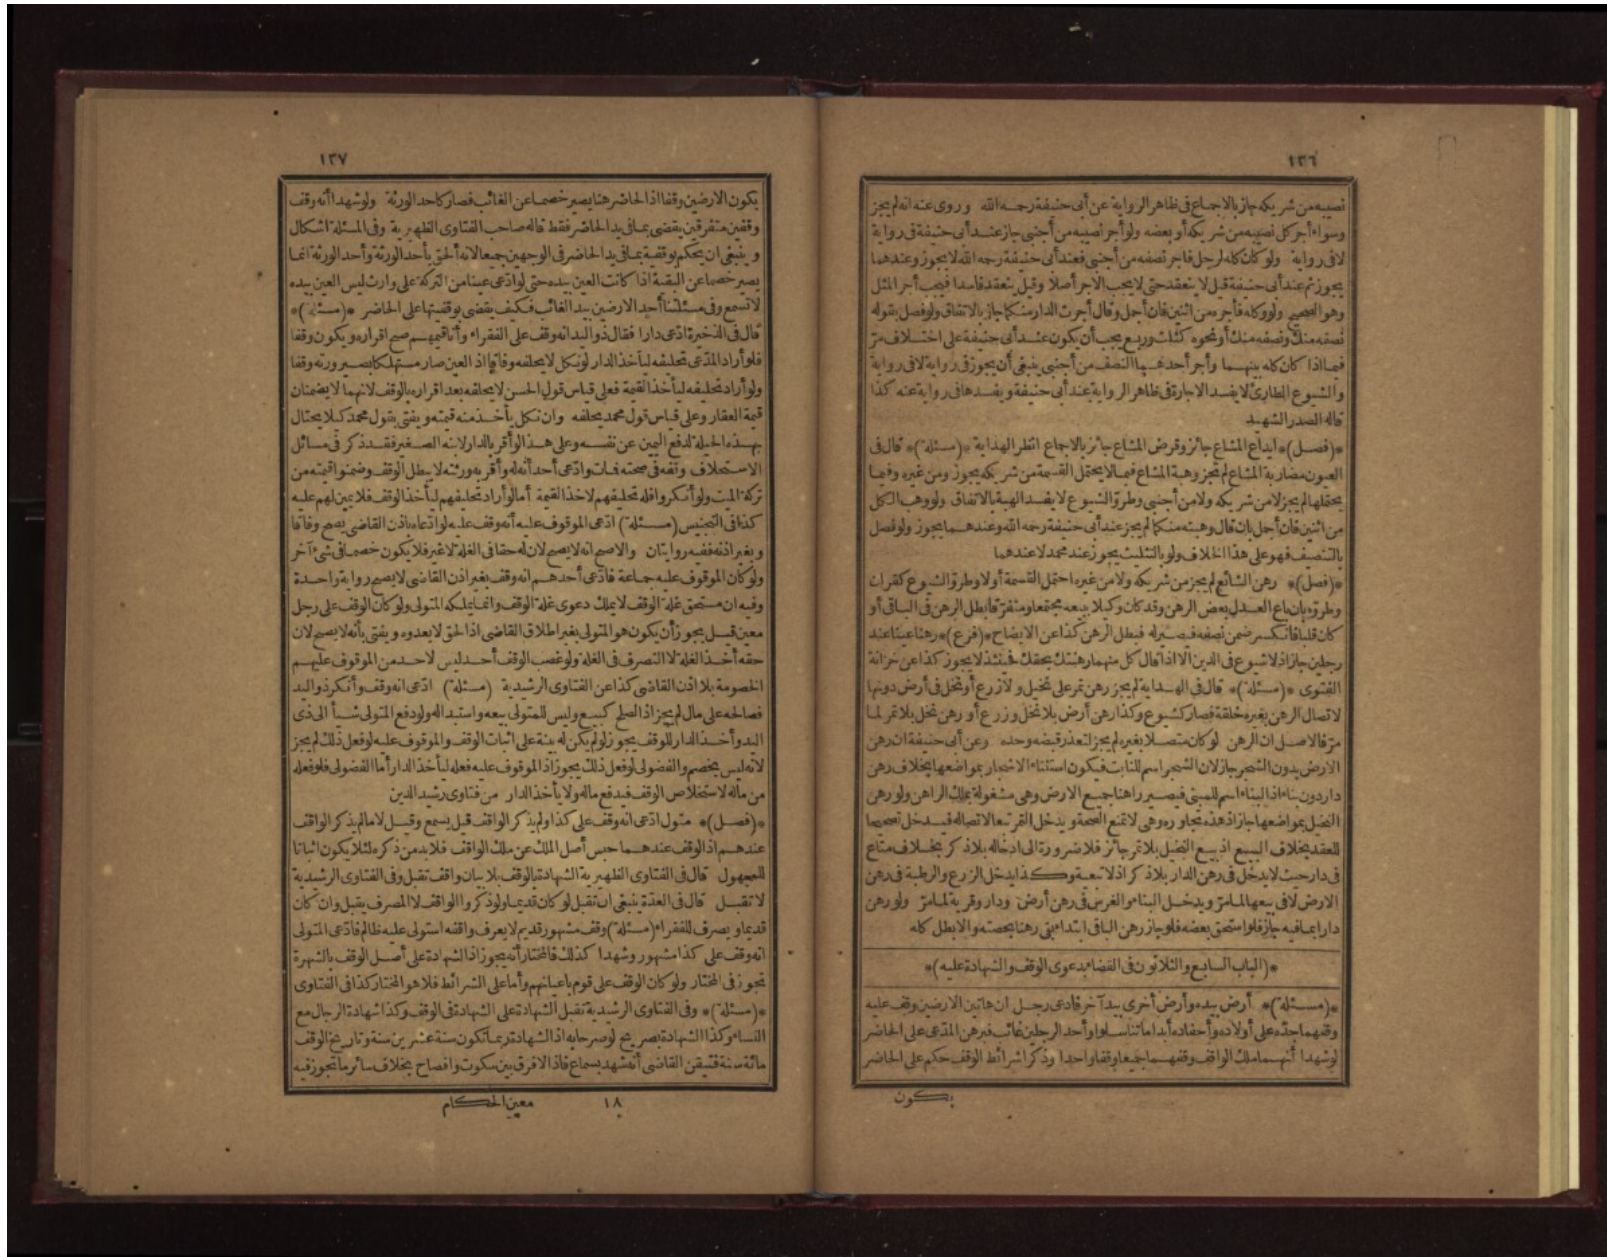 ١٣٦
نصيبه من شريكه جاز بالاجماع فى ظاهر الرواية عن أبى حنيفة رحمه الله وروى عنه انه لم يجز
وسواء أجر كل نصيبه من شريكه أو بعضه ولو أجر نصيبه من أجنبى جاز عند أبى حنيفة فى رواية
لا فى رواية ولو كان كله لرجل فاجر نصفه من أجنبى فعند أبى حنيفة رحمه الله لا يجوز وعندهما
يجوز ثم عند أبى حنيفة قيل لا ينعقد حتى لا يجب الاجر أصلا وقيل ينعقد فاسدا فيجب أجر المثل
وهو الصحيح ولو وكله فأجره من اثنين فان أجل وقال أجرت الدار منكما جاز بالاتفاق ولو فصل بقوله
نصفه منك ونصفه منك أو نحوه كثلث وربع يجب أن يكون عند أبى حنيفة على اختلاف مرّ
فيما اذا كان كله بينهما وأجر أحدهما النصف من أجنبى ينبغى أن يجوز فى رواية لا فى رواية
والشيوع الطارئ لا يفسد الاجارة فى ظاهر الرواية عند أبى حنيفة ويفسدها فى رواية عنه كذا
قاله الصدر الشهيد
*(فصل)* ايداع المشاع جائز وقرض المشاع جائز بالاجماع انظر الهداية *(مسئلة)* قال فى
العيون مضاربة المشاع لم تجز وهبة المشاع فيما لا يحتمل القسمة من شريكه يجوز ومن غيره وفيما
يحتملها لم يجز لا من شريكه ولا من أجنبى وطروّ الشيوع لا يفسد الهبة بالاتفاق ولو وهب الكل
من اثنين فان أجل بان قال وهبته منكما لم يجز عند أبى حنيفة رحمه الله وعندهما يجوز ولو فصل
بالتنصيف فهو على هذا الخلاف ولو بالتثليث يجوز عند محمد لا عندهما
*(فصل)* رهن الشائع لم يجز من شريكه ولا من غيره احتمل القسمة أو لا وطروّ الشيوع كقران
وطروّه بان باع العدل بعض الرهن وقد كان وكيلا ببيعه مجتمعا ومتفرقا بطل الرهن فى الباقى أو
كان قلبا فانكسر ضمن نصفه فيصير له فبطل الرهن كذا عن الايضاح *(فرع)* رهنا عينا عند
رجلين جاز اذ لا شيوع فى الدين الا اذا قال كل منهما رهنتك بحقك فحينئذ لا يجوز كذا عن خزانة
الفتوى *(مسئلة)* قال فى الهداية لم يجز رهن تمر على نخيل ولا زرع أو نخل فى أرض دونها
لاتصال الرهن بغيره خلقة فصار كشيوع وكذا رهن أرض بلا نخل وزرع أو رهن نخل بلا تمر لما
مرّ فالاصل ان الرهن لو كان متصلا بغيره لم يجز لتعذر قبضه وحده وعن أبى حنيفة ان رهن
الارض بدون الشجر جاز لان الشجر اسم للنابت فيكون استثناء الاشجار بمواضعها بخلاف رهن
دار دون بناء اذ البناء اسم للمبنى فيصير راهنا جميع الارض وهى مشغولة بملك الراهن ولو رهن
النخل بمواضعها جاز اذ هذه مجاورة وهى لا تمنع الصحة ويدخل التمر تبعا لاتصاله فيدخل تصحيحا
للعقد بخلاف البيع اذ بيع النخيل بلا تمر جائز فلا ضرورة الى ادخاله بلا ذكر بخلاف متاع
فى دار حيث لا يدخل فى رهن الدار بلا ذكر اذ لا تبعية وكذا يدخل الزرع والرطبة فى رهن
الارض لا فى بيعها لما مرّ ويدخل البناء والغرس فى رهن أرض ودار وقرية لما مرّ ولو رهن
دارا بما فيه جاز فلو استحق بعضه فلو جاز رهن الباقى ابتداء بقى رهنا بحصته والا بطل كله
*(الباب السابع والثلاثون فى القضاء بدعوى الوقف والشهادة عليه)*
*(مسئلة)* أرض بيده وأرض أخرى بيد آخر فادعى رجل ان هاتين الارضين وقف عليه
وقفهما جدّه على أولاده وأحفاده أبدا ما تناسلوا وأحد الرجلين غائب فبرهن المدّعى على الحاضر
لو شهدا أنهما ملك الواقف وقفهما جميعا وقفا واحدا وذكرا شرائط الوقف حكم على الحاضر
يكون
١٣٧
يكون الارضين وقفا اذ الحاضر هنا يصير خصما عن الغائب فصار كاحد الورثة ولو شهدا أنه وقف
وقفين متفرقين يقضى بما فى يد الحاضر فقط قاله صاحب الفتاوى الظهيرية وفى المسئلة اشكال
وينبغى ان يحكم بوقفية بما فى يد الحاضر فى الوجهين جميعا لانه ألحق بأحد الورثة وأحد الورثة انما
يصير خصما عن البقية اذا كانت العين بيده حتى لو ادّعى عينا من التركة على وارث ليس العين بيده
لا تسمع وفى مسئلتنا أحد الارضين بيد الغائب فكيف يقضى بوقفيتها على الحاضر *(مسئلة)*
قال فى الذخيرة ادّعى دارا فقال ذو اليد انه وقف على الفقراء وأنا قيمهم صح اقراره ويكون وقفا
فلو أراد المدّعى تحليفه ليأخذ الدار لو نكل لا يحلفه وفاقا اذ العين صار مستهلكا بصيرورته وقفا
ولو أراد تحليفه ليأخذ القيمة فعلى قياس قول الحسن لا يحلفه بعد اقراره بالوقف لانهما لا يضمنان
قيمة العقار وعلى قياس قول محمد يحلفه وان نكل يأخذ منه قيمته ويفتى بقول محمد كيلا يحتال
بهذه الحيلة لدفع اليمين عن نفسه وعلى هذا لو أقر بالدار لابنه الصغير فقد ذكر فى مسائل
الاستحلاف وقفه فى صحته فمات وادّعى أحد أنه له وأقر به ورثته لا يبطل الوقف وضمنوا قيمته من
تركة الميت ولو أنكروا فله تحليفهم لاخذ القيمة أما لو أراد تحليفهم ليأخذ الوقف فلا يمين لهم عليه
كذا فى التجنيس (مسئلة) ادّعى الموقوف عليه أنه وقف عليه لو ادّعاه باذن القاضى يصح وفاقا
وبغير اذنه ففيه روايتان والاصح انه لا يصح لان له حقا فى الغلة لا غير فلا يكون خصما فى شئ آخر
ولو كان الموقوف عليه جماعة فادّعى أحدهم انه وقف بغير اذن القاضى لا يصح رواية واحدة
وفيه ان مستحق غلة الوقف لا يملك دعوى غلة الوقف وانما يملكه المتولى ولو كان الوقف على رجل
معين قيل يجوز أن يكون هو المتولى بغير اطلاق القاضى اذ الحق لا يعدوه ويفتى بأنه لا يصح لان
حقه أخذ الغلة لا التصرف فى الغلة ولو غصب الوقف أحد ليس لاحد من الموقوف عليهم
الخصومة بلا اذن القاضى كذا عن الفتاوى الرشيدية (مسئلة) ادّعى انه وقف وأنكر ذو اليد
فصالحه على مال لم يجز اذ الصلح كبيع وليس للمتولى بيعه واستبداله ولو دفع المتولى شيأ الى ذى
اليد وأخذ الدار للوقف يجوز لو لم يكن له بينة على اثبات الوقف والموقوف عليه لو فعل ذلك لم يجز
لانه ليس بخصم والفضولى لو فعل ذلك يجوز اذ الموقوف عليه فعله ليأخذ الدار أما الفضولى فلو فعله
من ماله لاستخلاص الوقف فيدفع ماله ولا يأخذ الدار من فتاوى رشيد الدين
*(فصل)* متول ادّعى انه وقف على كذا ولم يذكر الواقف قيل يسمع وقيل لا ما لم يذكر الواقف
عندهم اذ الوقف عندهما حبس أصل الملك عن ملك الواقف فلا بد من ذكره لئلا يكون اثباتا
للمجهول قال فى الفتاوى الظهيرية الشهادة بالوقف بلا بيان واقف تقبل وفى الفتاوى الرشيدية
لا تقبل قال فى العدّة ينبغى ان تقبل لو كان قديما ولو ذكروا الواقف لا المصرف يقبل وان كان
قديما ويصرف للفقراء (مسئلة) وقف مشهور قديم لا يعرف واقفه استولى عليه ظالم فادّعى المتولى
انه وقف على كذا مشهور وشهدا كذلك فالمختار أنه يجوز اذ الشهادة على أصل الوقف بالشهرة
تجوز فى المختار ولو كان الوقف على قوم باعيانهم وأما على الشرائط فلا هو المختار كذا فى الفتاوى
*(مسئلة)* وفى الفتاوى الرشيدية تقبل الشهادة على الشهادة فى الوقف وكذا شهادة الرجال مع
النساء وكذا الشهادة بصريح لو صرحا به اذ الشهادة ربما تكون سنة عشرين سنة وتاريخ الوقف
مائة سنة فتيقن القاضى أنه شهد بسماع فاذ الافرق بين سكوت وافصاح بخلاف سائر ما تجوز فيه
١٨ معين الحكام